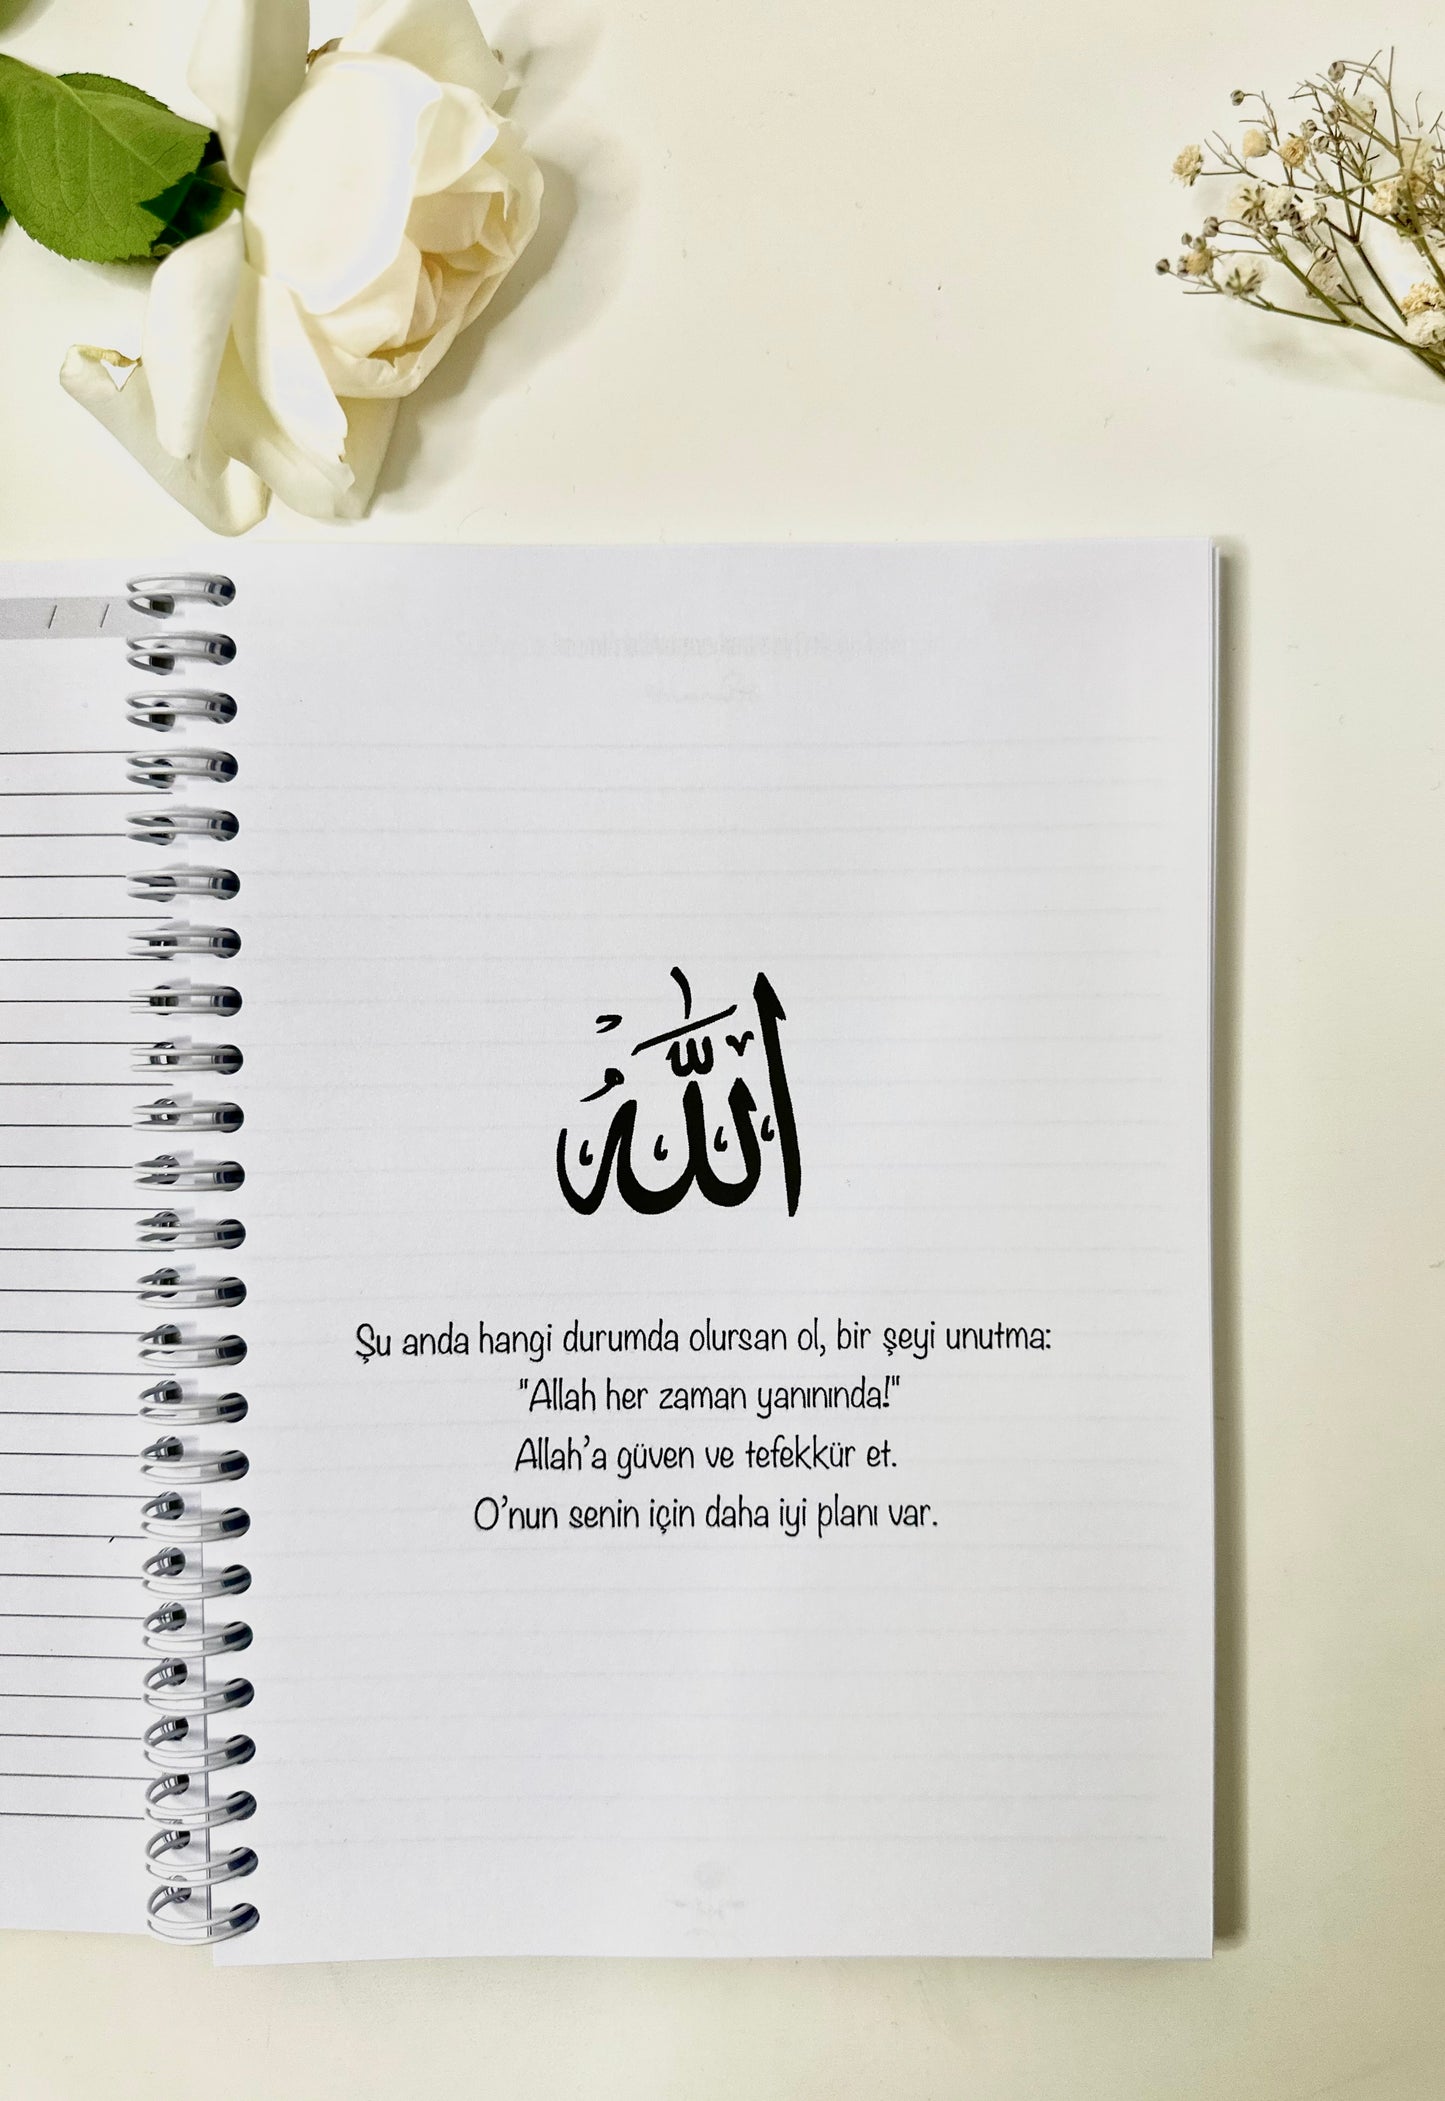 / /
اللّٰهُ
Şu anda hangi durumda olursan ol, bir şeyi unutma:
"Allah her zaman yanınında!"
Allah'a güven ve tefekkür et.
O'nun senin için daha iyi planı var.